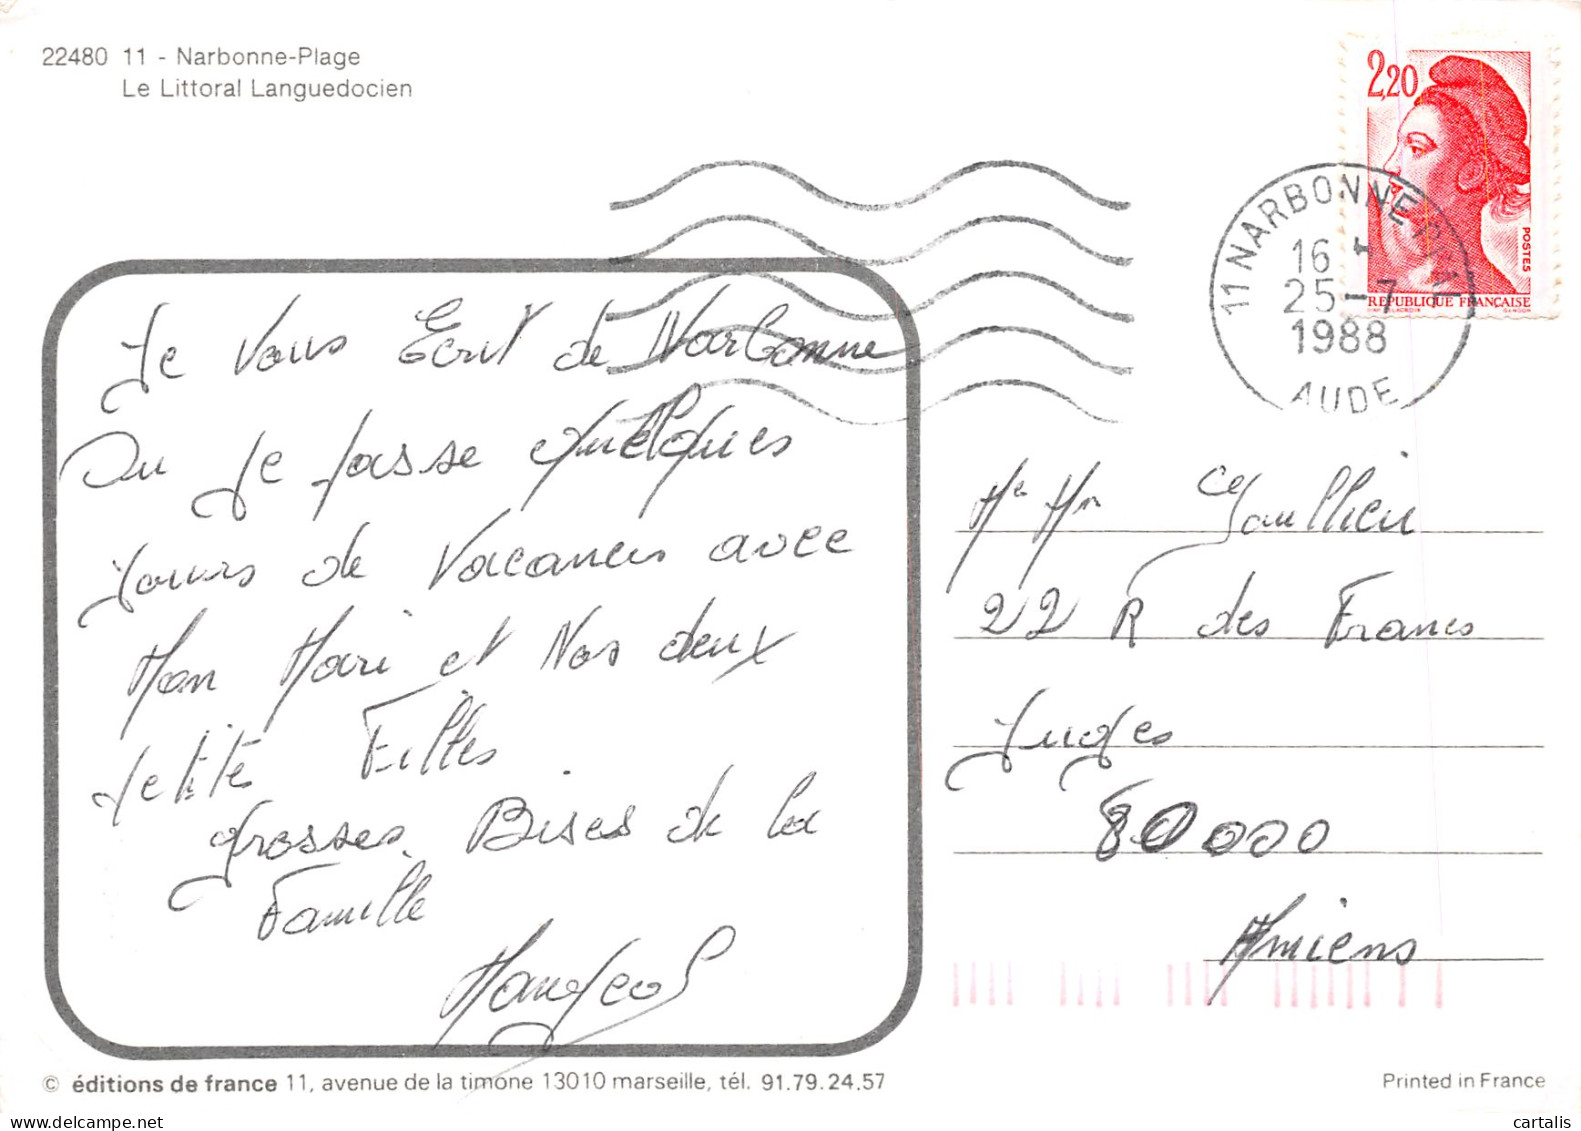 22480 11 - Narbonne-Plage
Le Littoral Languedocien
2,20
POSTES
REPUBLIQUE FRANÇAISE
11 NARBONNE
16
25-7
1988
AUDE
Je Vous Ecrit de Narbonne
Ou Je passe quelques
Jours de Vacances avec
Mon Mari et Nos deux
petite Filles
grosses Bises de la
Famille
Me Mr
22 R des Francs
Juges
80000
Amiens
© éditions de france 11, avenue de la timone 13010 marseille, tél. 91.79.24.57
Printed in France
cartalis